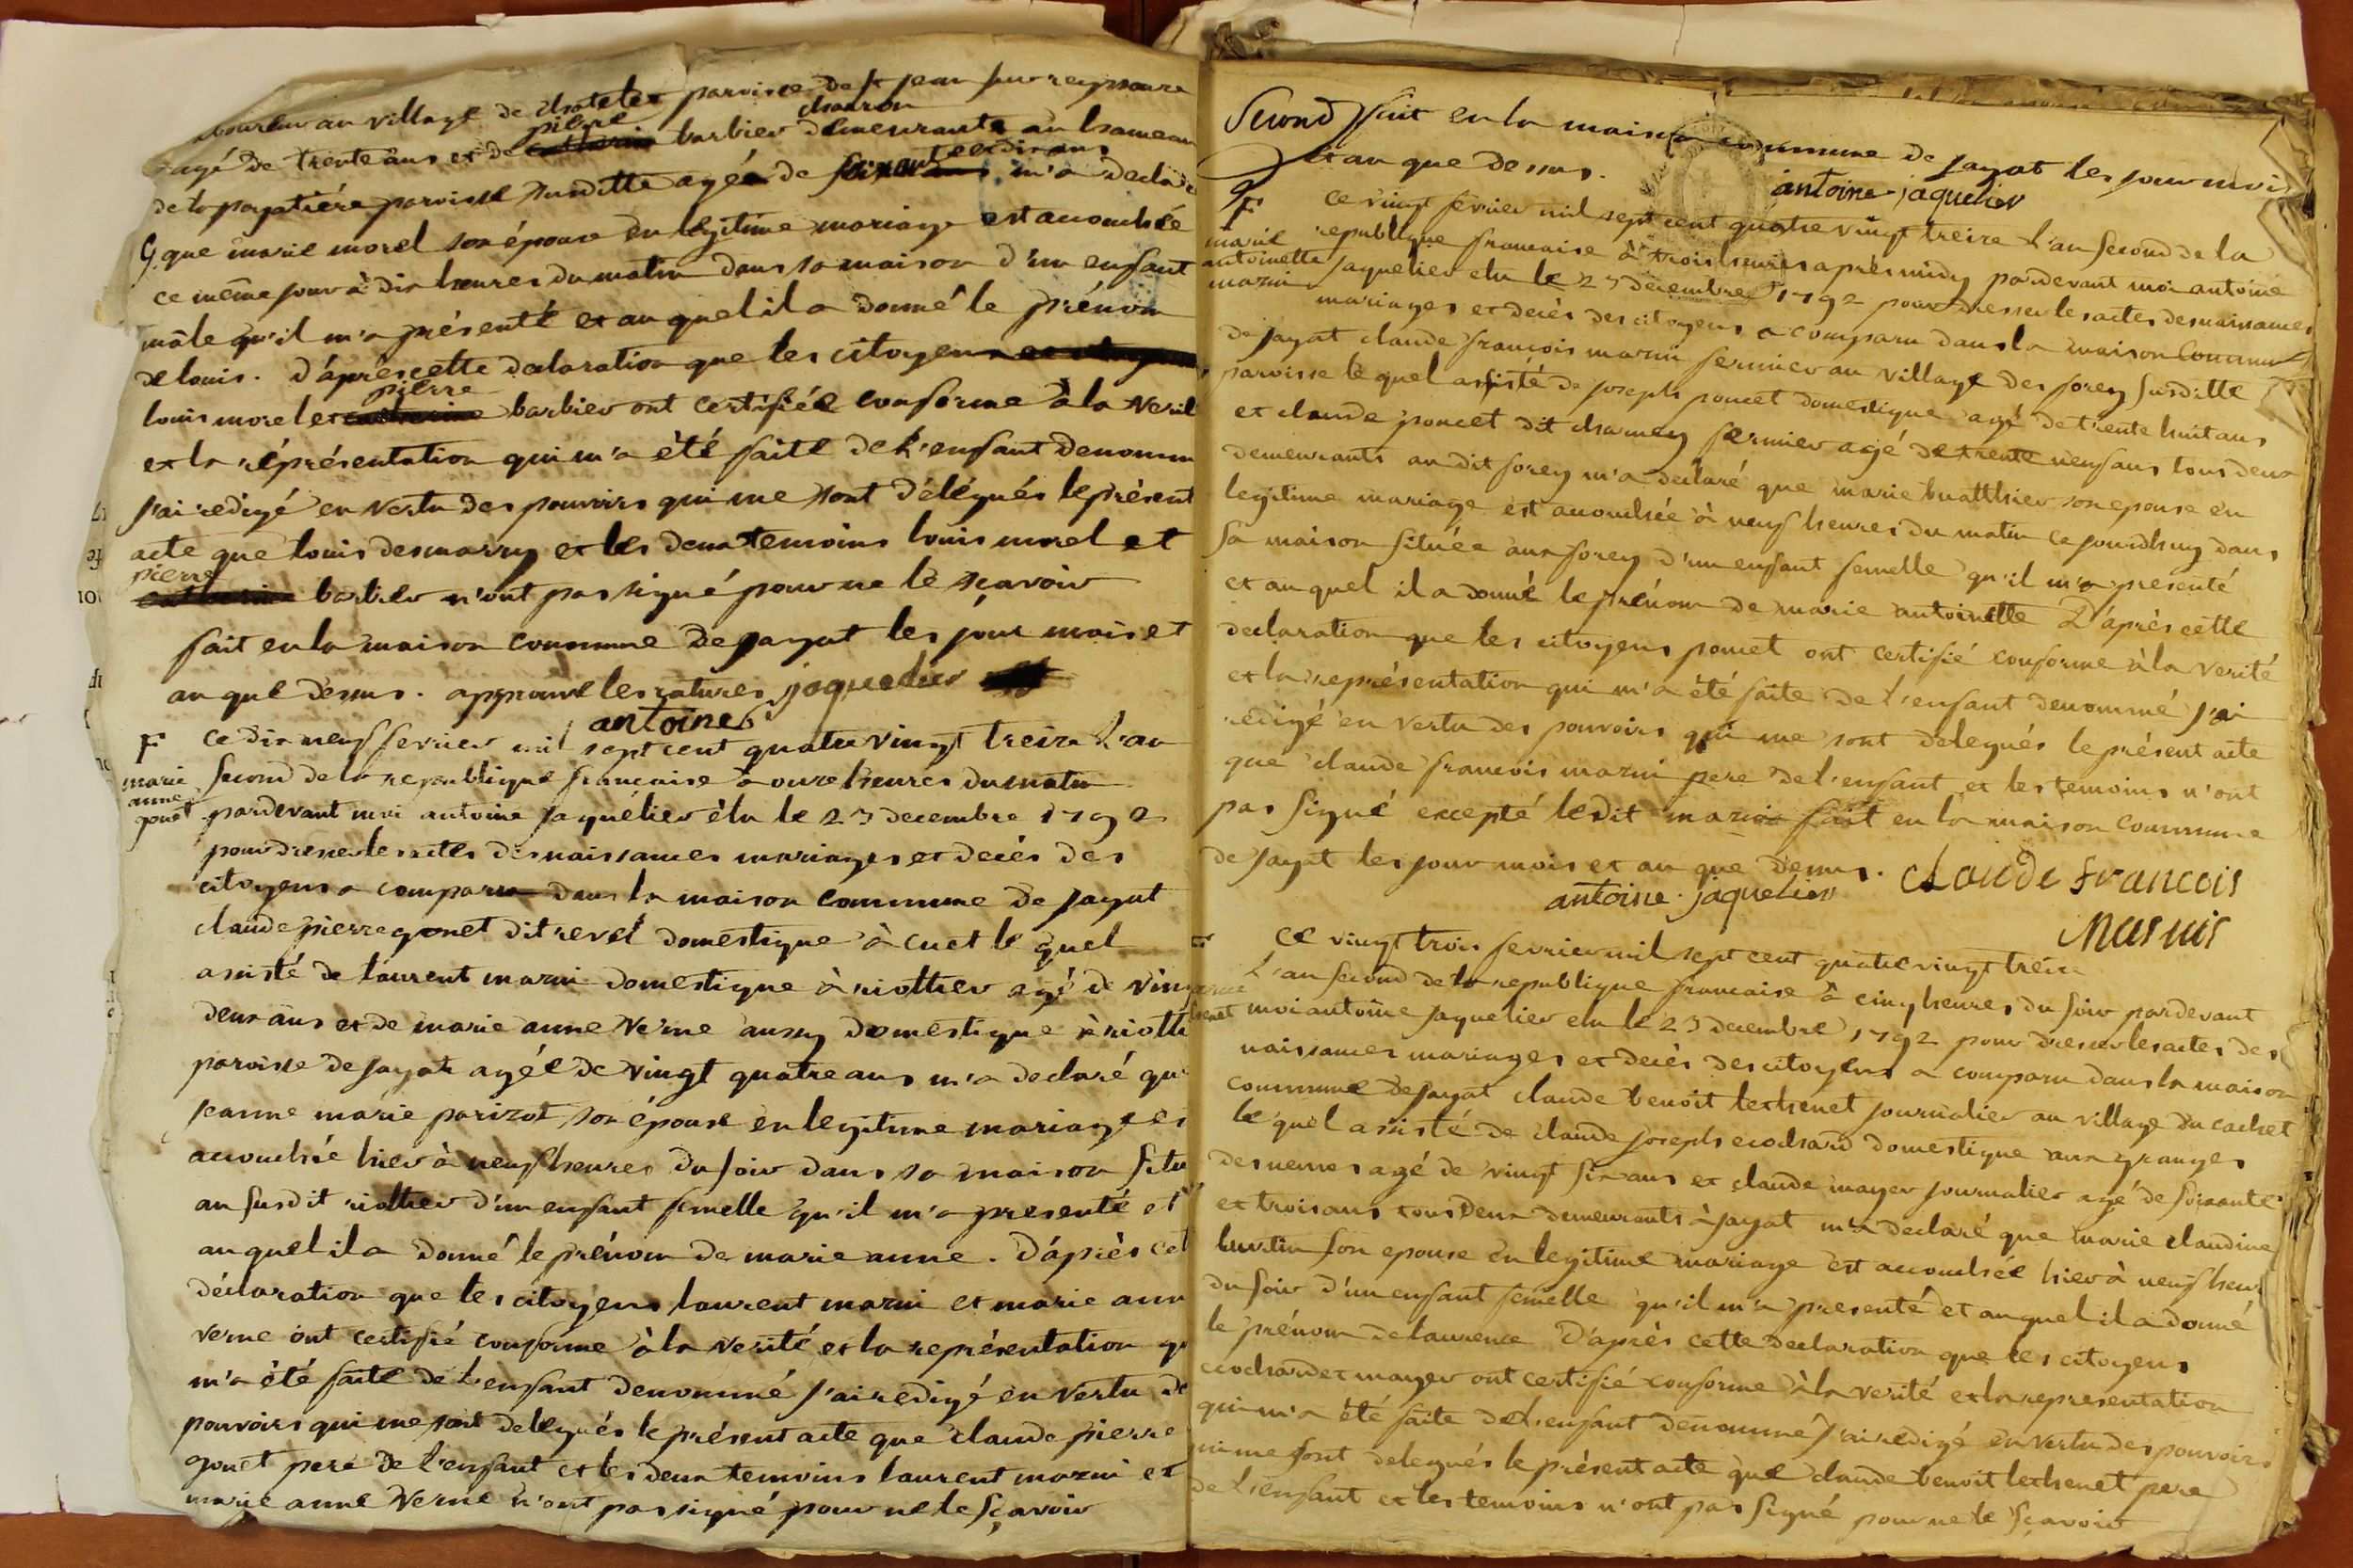 au village de chatelet paroisse de st jean sur reyssouze
agé de trente ans et de pierre barbier charon demeurants au hameau
de la payatiére paroisse susditte agé de soixante et dix ans m'a declaré
que marie morel son épouse en légitime mariage est accouchée
ce même jour à dix heures du matin dans sa maison d'un enfant
mâle qu'il m'a présenté et au quel il a donné le prénom
de louis. D'après cette declaration que les citoyens
louis morel et pierre barbier ont certifiée conforme à la verité
et la réprésentation qui m'a été faite de l'enfant denommé
j'ai redigé en vertu des pouvoirs qui me sont délégués le présent
acte que louis desmarry et les deux temoins louis morel et
pierre barbier n'ont pas signé pour ne le sçavoir
fait en la maison commune de jayat les jour mois et
an que dessus. approuvé les ratures antoine jaquelier
F
marie
anne
gonet
Ce dix neuf fevrier mil sept cent quatre vingt treize l'an
second de la republique française à onze heures du matin
pardevant moi antoine jaquélier élu le 23 decembre 1792
pour dresser les actes des naissances mariages et decés des
citoyens a comparu dans la maison commune de jayat
claude pierre gonet dit revel domestique à cuet le quel
assisté de laurent mazui domestique à riottier agé de vingt
deux ans et de marie anne verne aussy domestique à riottier
paroisse de jayat agée de vingt quatre ans m'a declaré que
jeanne marie parizot son épouse en legitime mariage est
accouchée hier à neuf heures du soir dans sa maison située
au susdit riottier d'un enfant femelle qu'il m'a presenté et
au quel il a donné le prénom de marie anne. D'après cette
déclaration que les citoyens laurent mazui et marie anne
verne ont certifié conforme à la verité et la représentation qui
m'a été faite de l'enfant denommé j'ai redigé en vertu des
pouvoirs qui me sont delegués le présent acte que claude pierre
gonet pere de l'enfant et les deux temoins laurent mazui et
marie anne verne n'ont pas signé pour ne le sçavoir
Second fait en la maison commune de jayat les jour mois
et an que dessus. antoine jaquelier
F
marie
antoinette
mazui
Ce vingt fevrier mil sept cent quatre vingt treize l'an second de la
republique francaise à trois heures après midy pardevant moi antoine
jaquelier elu le 23 decembre 1792 pour dresser les actes des naissances
mariages et decès des citoyens a comparu dans la maison commune
de jayat claude françois mazui fermier au village des forey susditte
paroisse le quel assisté de joseph poncet domestique agé de trente huit ans
et claude poncet dit charney fermier agé de trente neuf ans tous deux
demeurants au dit forey m'a declaré que marie buatthier son epouse en
legitime mariage est accouchée à neuf heures du matin ce jourdhuy dans
sa maison située aux forey d'un enfant femelle qu'il m'a présenté
et au quel il a donné le prénom de marie antoinette D'après cette
declaration que les citoyens poncet ont certifié conforme à la verité
et la représentation qui m'a été faite de l'enfant denommé j'ai
redigé en vertu des pouvoirs qui me sont delegués le présent acte
que claude francois mazui pere de l'enfant et les temoins n'ont
pas signé excepté ledit mazui fait en la maison commune
de jayat les jour mois et an que dessus.
antoine jaquelier claude francois
Masuis
F
Ce vingt trois fevrier mil sept cent quatre vingt treize
l'an second de la republique francaise à cinq heures du soir pardevant
moi antoine jaquelier elu le 23 decembre 1792 pour dresser les actes des
naissances mariages et decès des citoyens a comparu dans la maison
commune de jayat claude benoit lechenet journalier au village du cachet
le quel assisté de claude joseph ecochard domestique aux granges
agé de vingt six ans et claude mayer journalier agé de soixante
et trois ans tous deux demeurants à jayat m'a declaré que marie claudine
son epouse en legitime mariage est accouchée hier à neuf heures
du soir d'un enfant femelle qu'il m'a presenté et au quel il a donné
le prénom de laurence D'après cette declaration que les citoyens
ecochard et mayer ont certifié conforme à la verité et la representation
qui m'a été faite de l'enfant denommé j'ai redigé en vertu des pouvoirs
qui me sont delegués le présent acte que claude benoit lechenet pere
de l'enfant et les temoins n'ont pas signé pour ne le sçavoir